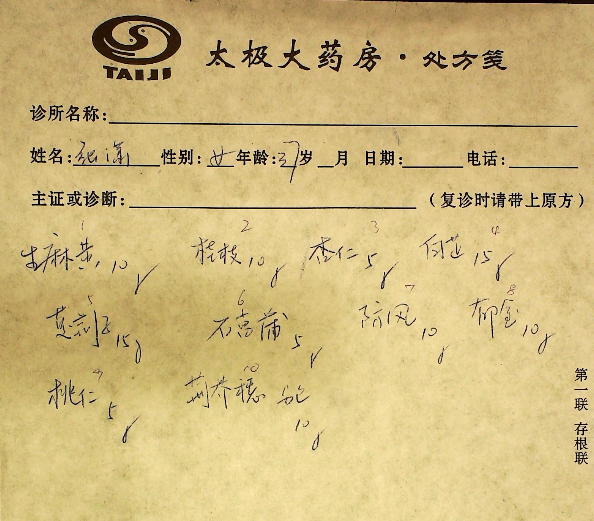 TAIJI
太极大药房·处方笺
诊所名称:
姓名: 张 性别: 女 年龄: 37 岁 月 日期: 电话:
主证或诊断: (复诊时请带上原方)
1 2 3 4
生麻黄 10g 桂枝 10g 杏仁 5g 白芷 15g
5 6 7 8
蔓荆子 15g 石菖蒲 5g 防风 10g 郁金 10g
9 10
桃仁 5g 荆芥穗 10g
第一联 存根联